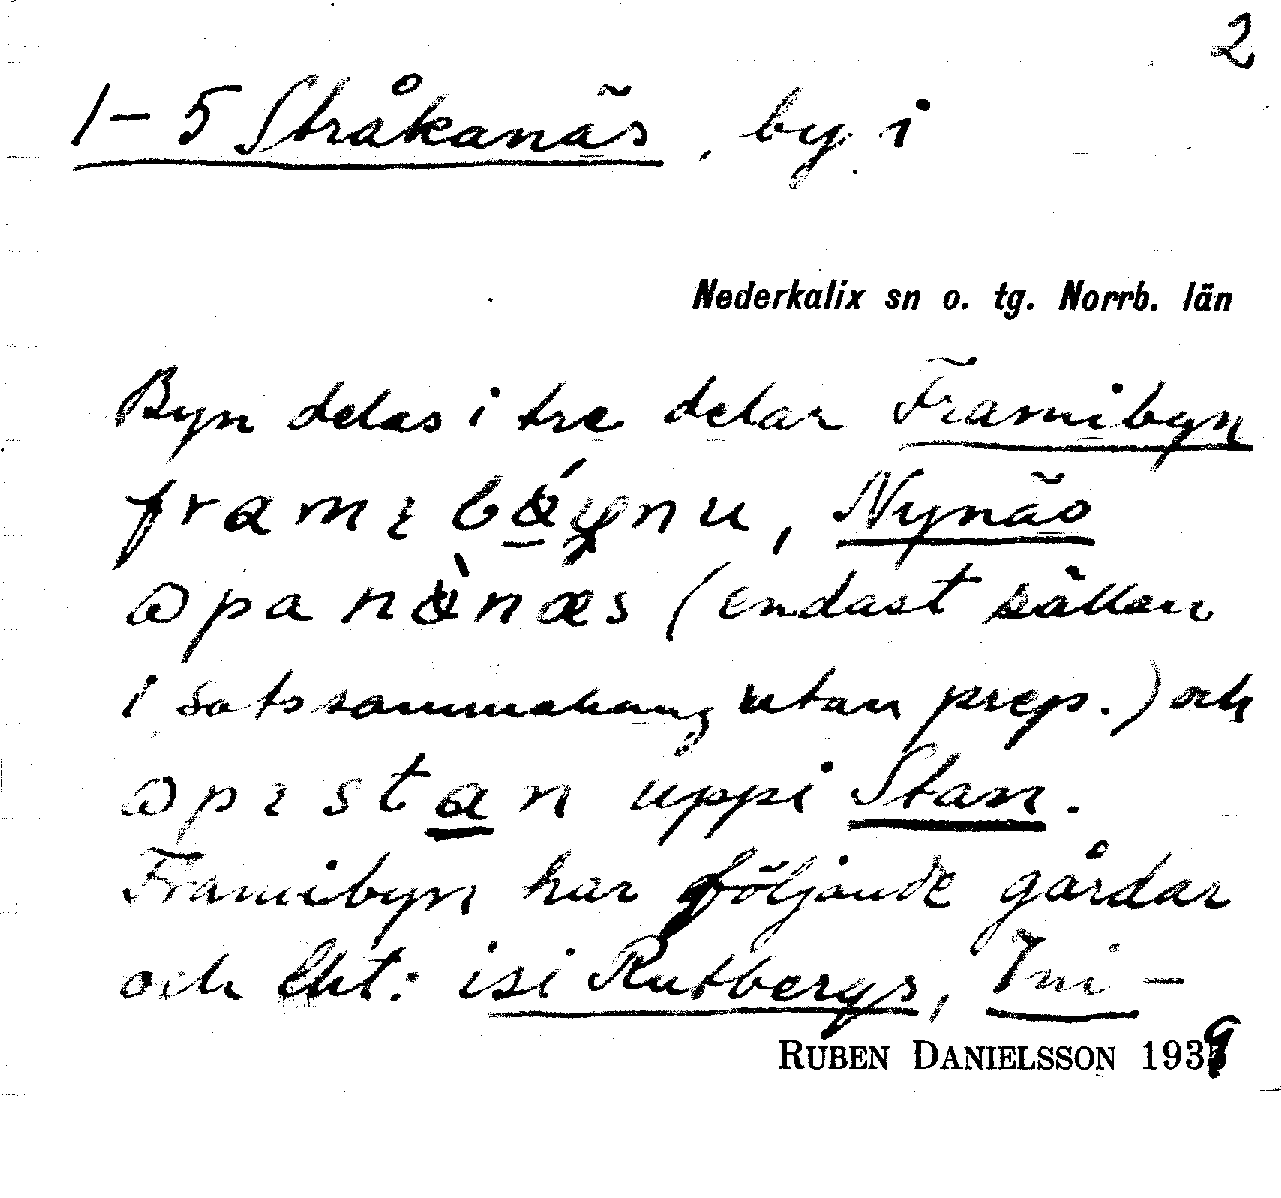 2
1-5 Stråkanäs, by i
Nederkalix sn o. tg. Norrb. län
Byn delas i tre delar Framibyn
Nynäs
(endast sällan
i satssammahang utan prep.) och
uppi Stan.
Framibyn har följande gårdar
och lht: isi Rutbergs, Ini-
RUBEN DANIELSSON 1939